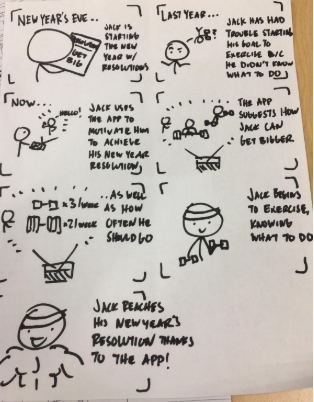 NEW YEAR'S EVE..
JACK IS
STARTING
THE NEW
YEAR W/
RESOLUTIONS
GET
BIG
LAST YEAR...
JACK HAS HAD
TROUBLE STARTING
HIS GOAL TO
EXERCISE B/C
HE DIDN'T KNOW
WHAT TO DO
?
NOW...
HELLO!
JACK USES
THE APP TO
MOTIVATE HIM
TO ACHIEVE
HIS NEW YEAR
RESOLUTION
THE APP
SUGGESTS HOW
JACK CAN
GET BIGGER
x3/WEEK
x2/WEEK
...AS WELL
AS HOW
OFTEN HE
SHOULD GO
JACK BEGINS
TO EXERCISE,
KNOWING
WHAT TO DO
JACK REACHES
HIS NEW YEAR'S
RESOLUTION THANKS
TO THE APP!